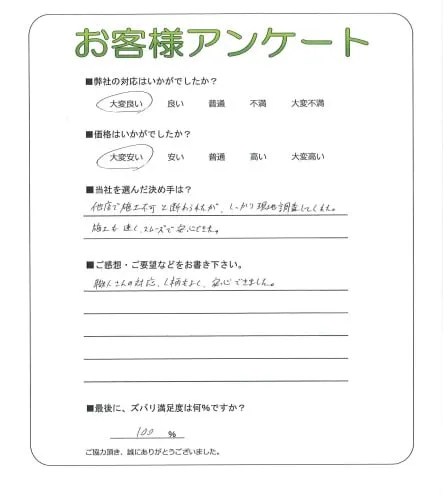 お客様アンケート
■弊社の対応はいかがでしたか?
大変良い 良い 普通 不満 大変不満
■価格はいかがでしたか?
大変安い 安い 普通 高い 大変高い
■当社を選んだ決め手は?
他店で施工不可と断わられたが、しっかり現地調査してくれた。
施工も速く、スムーズで安心できた。
■ご感想・ご要望などをお書き下さい。
職人さんの対応、人柄もよく、安心できました。
■最後に、ズバリ満足度は何%ですか?
100 %
ご協力頂き、誠にありがとうございました。